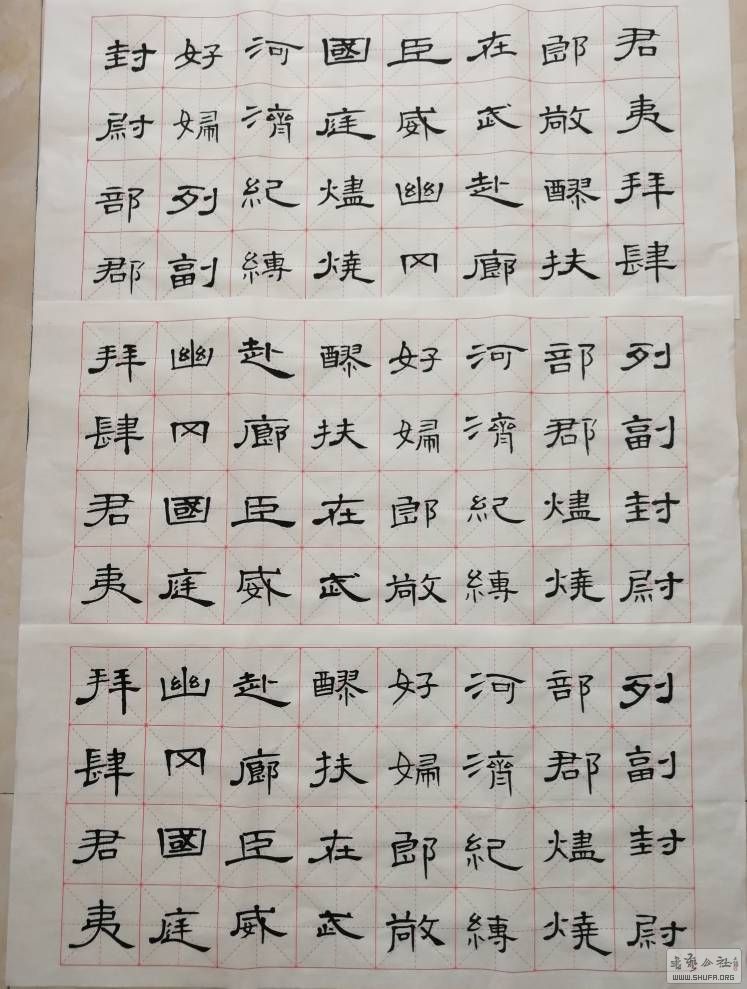 君夷拜肆
郎敞醪扶
在武赴廊
臣威幽冈
國庭燼燒
河濟紀縛
好婦列副
封尉部郡
列副封尉
部郡燼燒
河濟紀縛
好婦郎敞
醪扶在武
赴廊臣威
幽冈國庭
拜肆君夷
列副封尉
部郡燼燒
河濟紀縛
好婦郎敞
醪扶在武
赴廊臣威
幽冈國庭
拜肆君夷
WWW.SHUFA.ORG